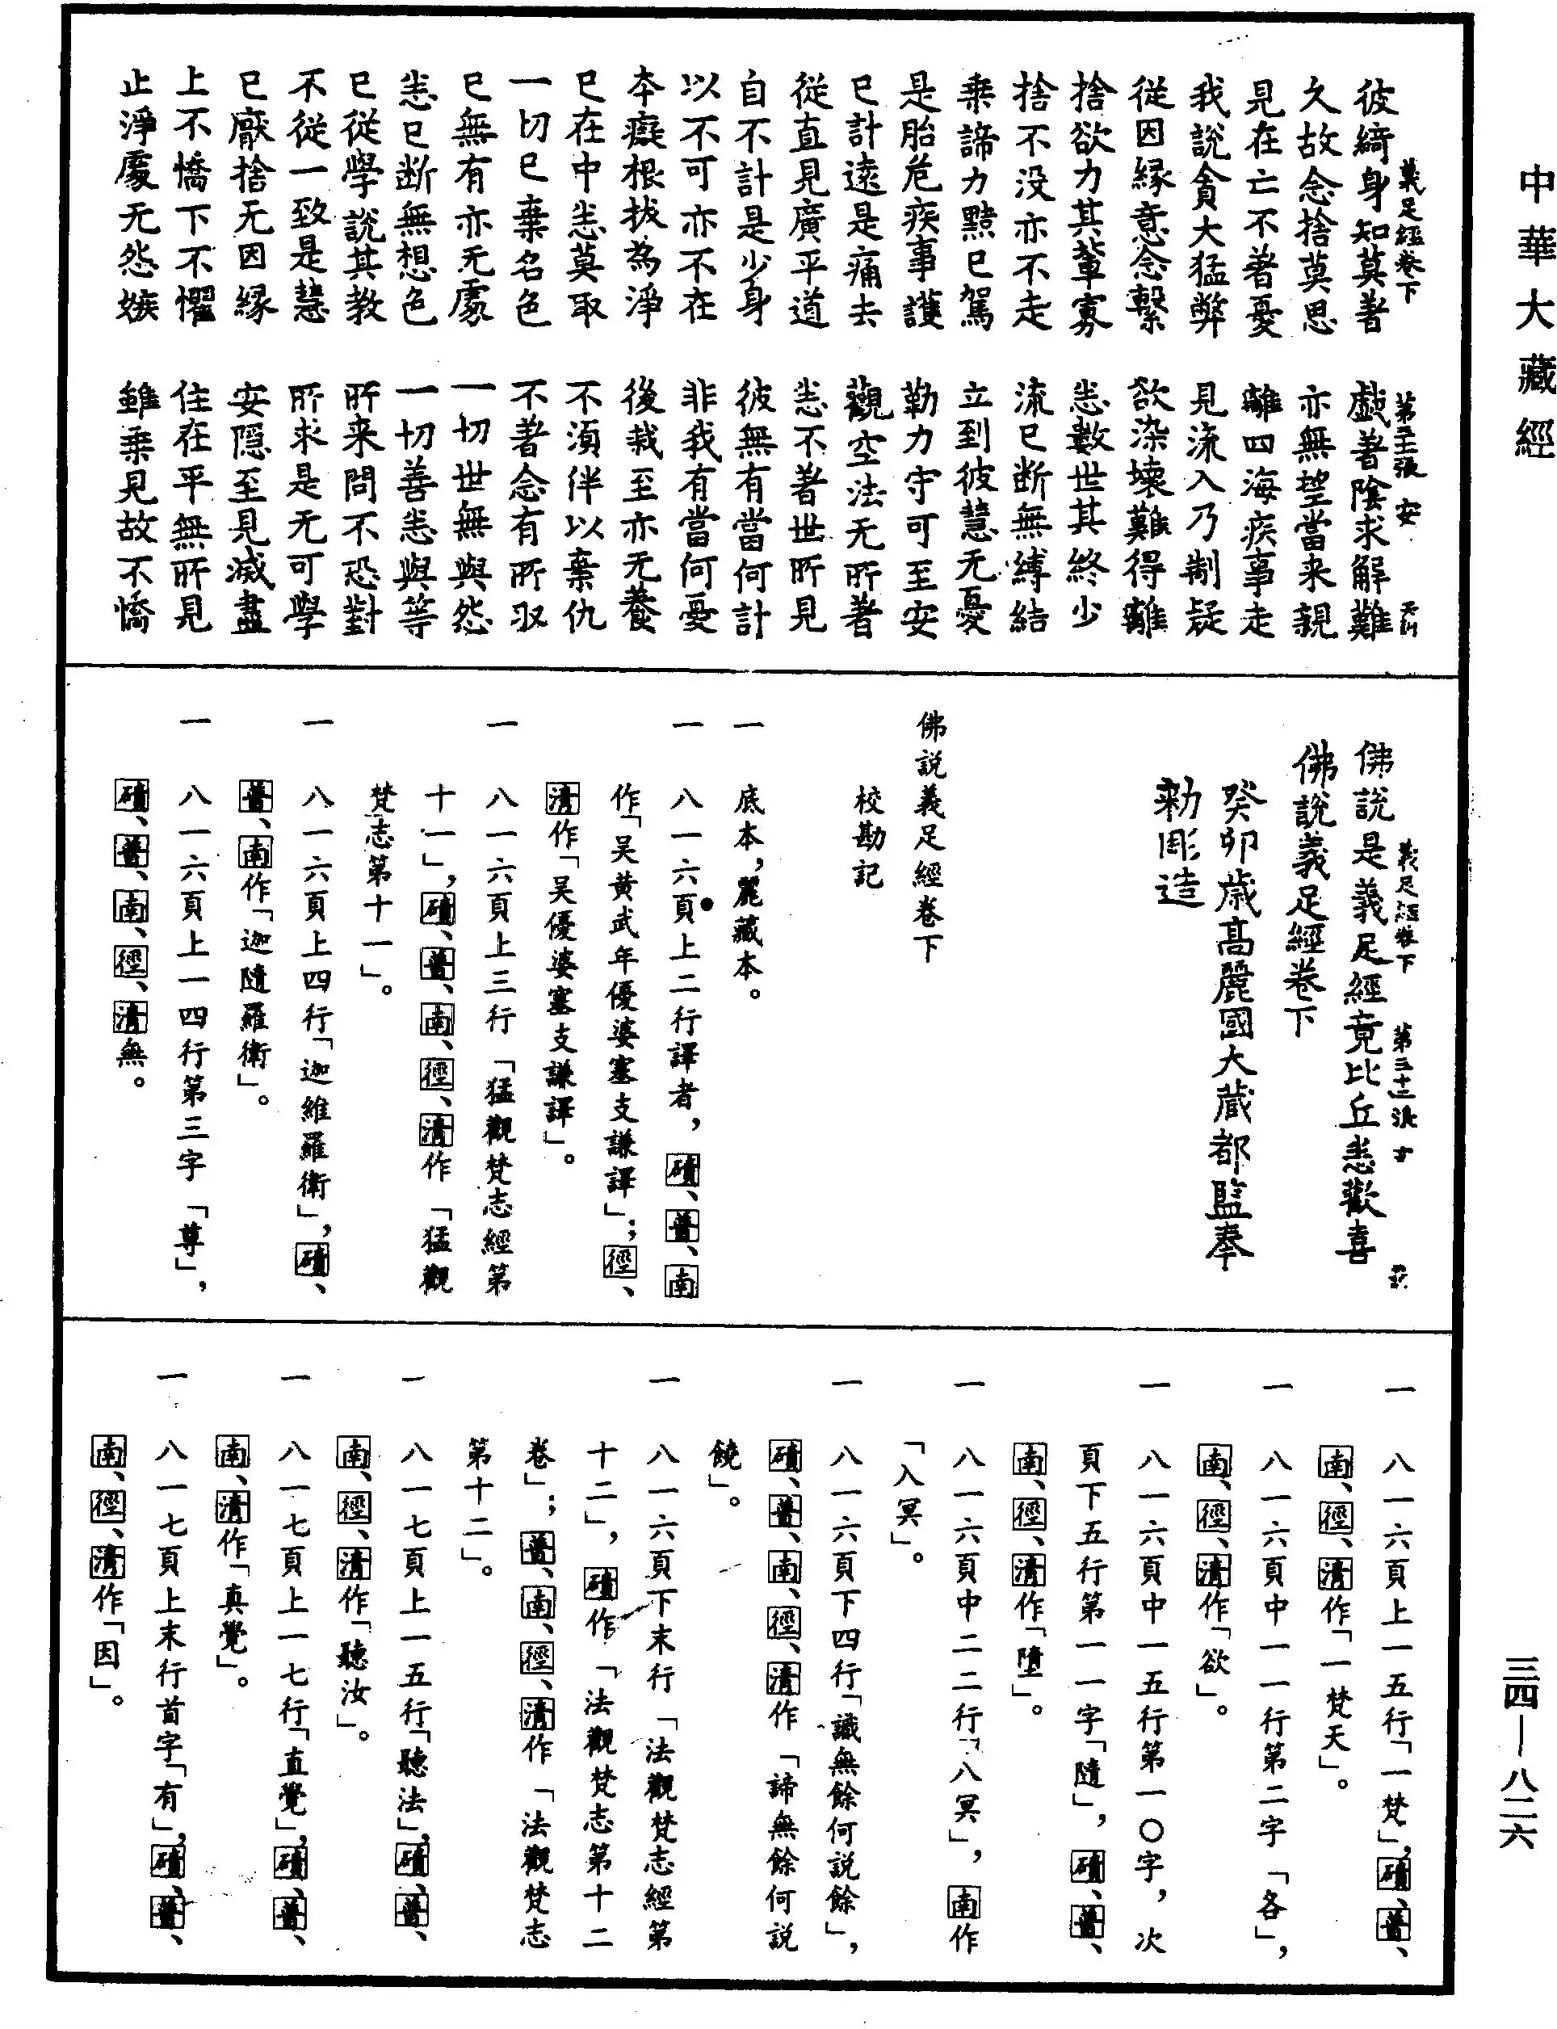 中華大藏經
義足經卷下 第三十一張 安
彼綺身知莫著 戲著陰求解難
久故念捨莫思 亦無望當来親
見在亡不著憂 離四海疾事走
我說貪大猛弊 見流入乃制疑
從因緣意念繫 欲染壞難得離
捨欲力其輩寡 悉數世其終少
捨不没亦不走 流已断無縛結
乗諦力黠已駕 立到彼慧无憂
是胎危疾事護 勤力守可至安
已計遠是痛去 觀空法无所著
從直見廣平道 悉不著世所見
自不計是少身 彼無有當何計
以不可亦不在 非我有當何憂
本癡根拔為淨 後栽至亦无養
已在中悉莫取 不須伴以棄仇
一切已棄名色 不著念有所収
已無有亦无處 一切世無與怨
悉已断無想色 一切善悉與等
已從學說其教 所来問不恐對
不從一致是慧 所求是无可學
已厭捨无因緣 安隱至見滅盡
上不憍下不懼 住在平無所見
止淨處无怨嫉 雖乗見故不憍
義足經卷下 第三十二張
佛說是義足經竟比丘悉歡喜
佛說義足經卷下
癸卯歲高麗國大藏都監奉
勑彫造
佛説義足經卷下
校勘記
一 底本,麗藏本。
一 八一六頁上二行譯者,磧、普、南
作「吴黄武年優婆塞支謙譯」;徑、
清作「吴優婆塞支謙譯」。
一 八一六頁上三行「猛觀梵志經第
十一」,磧、普、南、徑、清作「猛觀
梵志第十一」。
一 八一六頁上四行「迦維羅衛」,磧、
普、南作「迦隨羅衛」。
一 八一六頁上一四行第三字「尊」,
磧、普、南、徑、清無。
一 八一六頁上一五行「一梵」,磧、普、
南、徑、清作「一梵天」。
一 八一六頁中一一行第二字「各」,
南、徑、清作「欲」。
一 八一六頁中一五行第一〇字,次
頁下五行第一一字「隨」,磧、普、
南、徑、清作「墮」。
一 八一六頁中二二行「八冥」,南作
「入冥」。
一 八一六頁下四行「識無餘何説餘」,
磧、普、南、徑、清作「諦無餘何説
饒」。
一 八一六頁下末行「法觀梵志經第
十二」,磧作「法觀梵志第十二
卷」;普、南、徑、清作「法觀梵志
第十二」。
一 八一七頁上一五行「聽法」,磧、普、
南、徑、清作「聽汝」。
一 八一七頁上一七行「直覺」,磧、普、
南、清作「真覺」。
一 八一七頁上末行首字「有」,磧、普、
南、徑、清作「因」。
三四—八二六